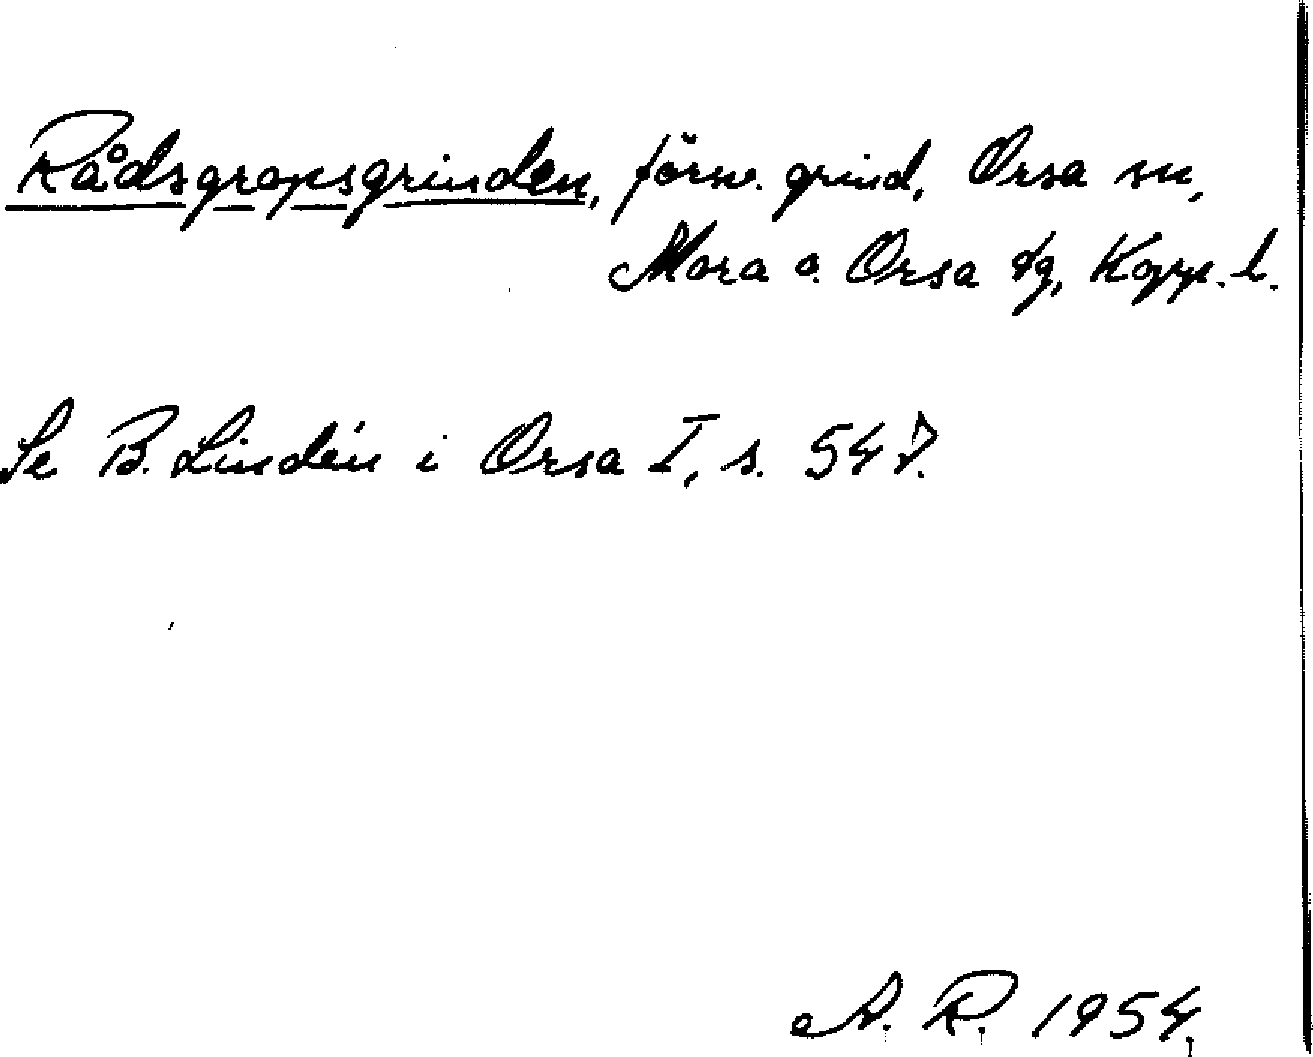 Rådsgropsgrinden, försv. grind, Orsa sn,
Mora o. Orsa dg, Kopp. l.
Se B. Lindén i Orsa I, s. 547.
A. R. 1954.